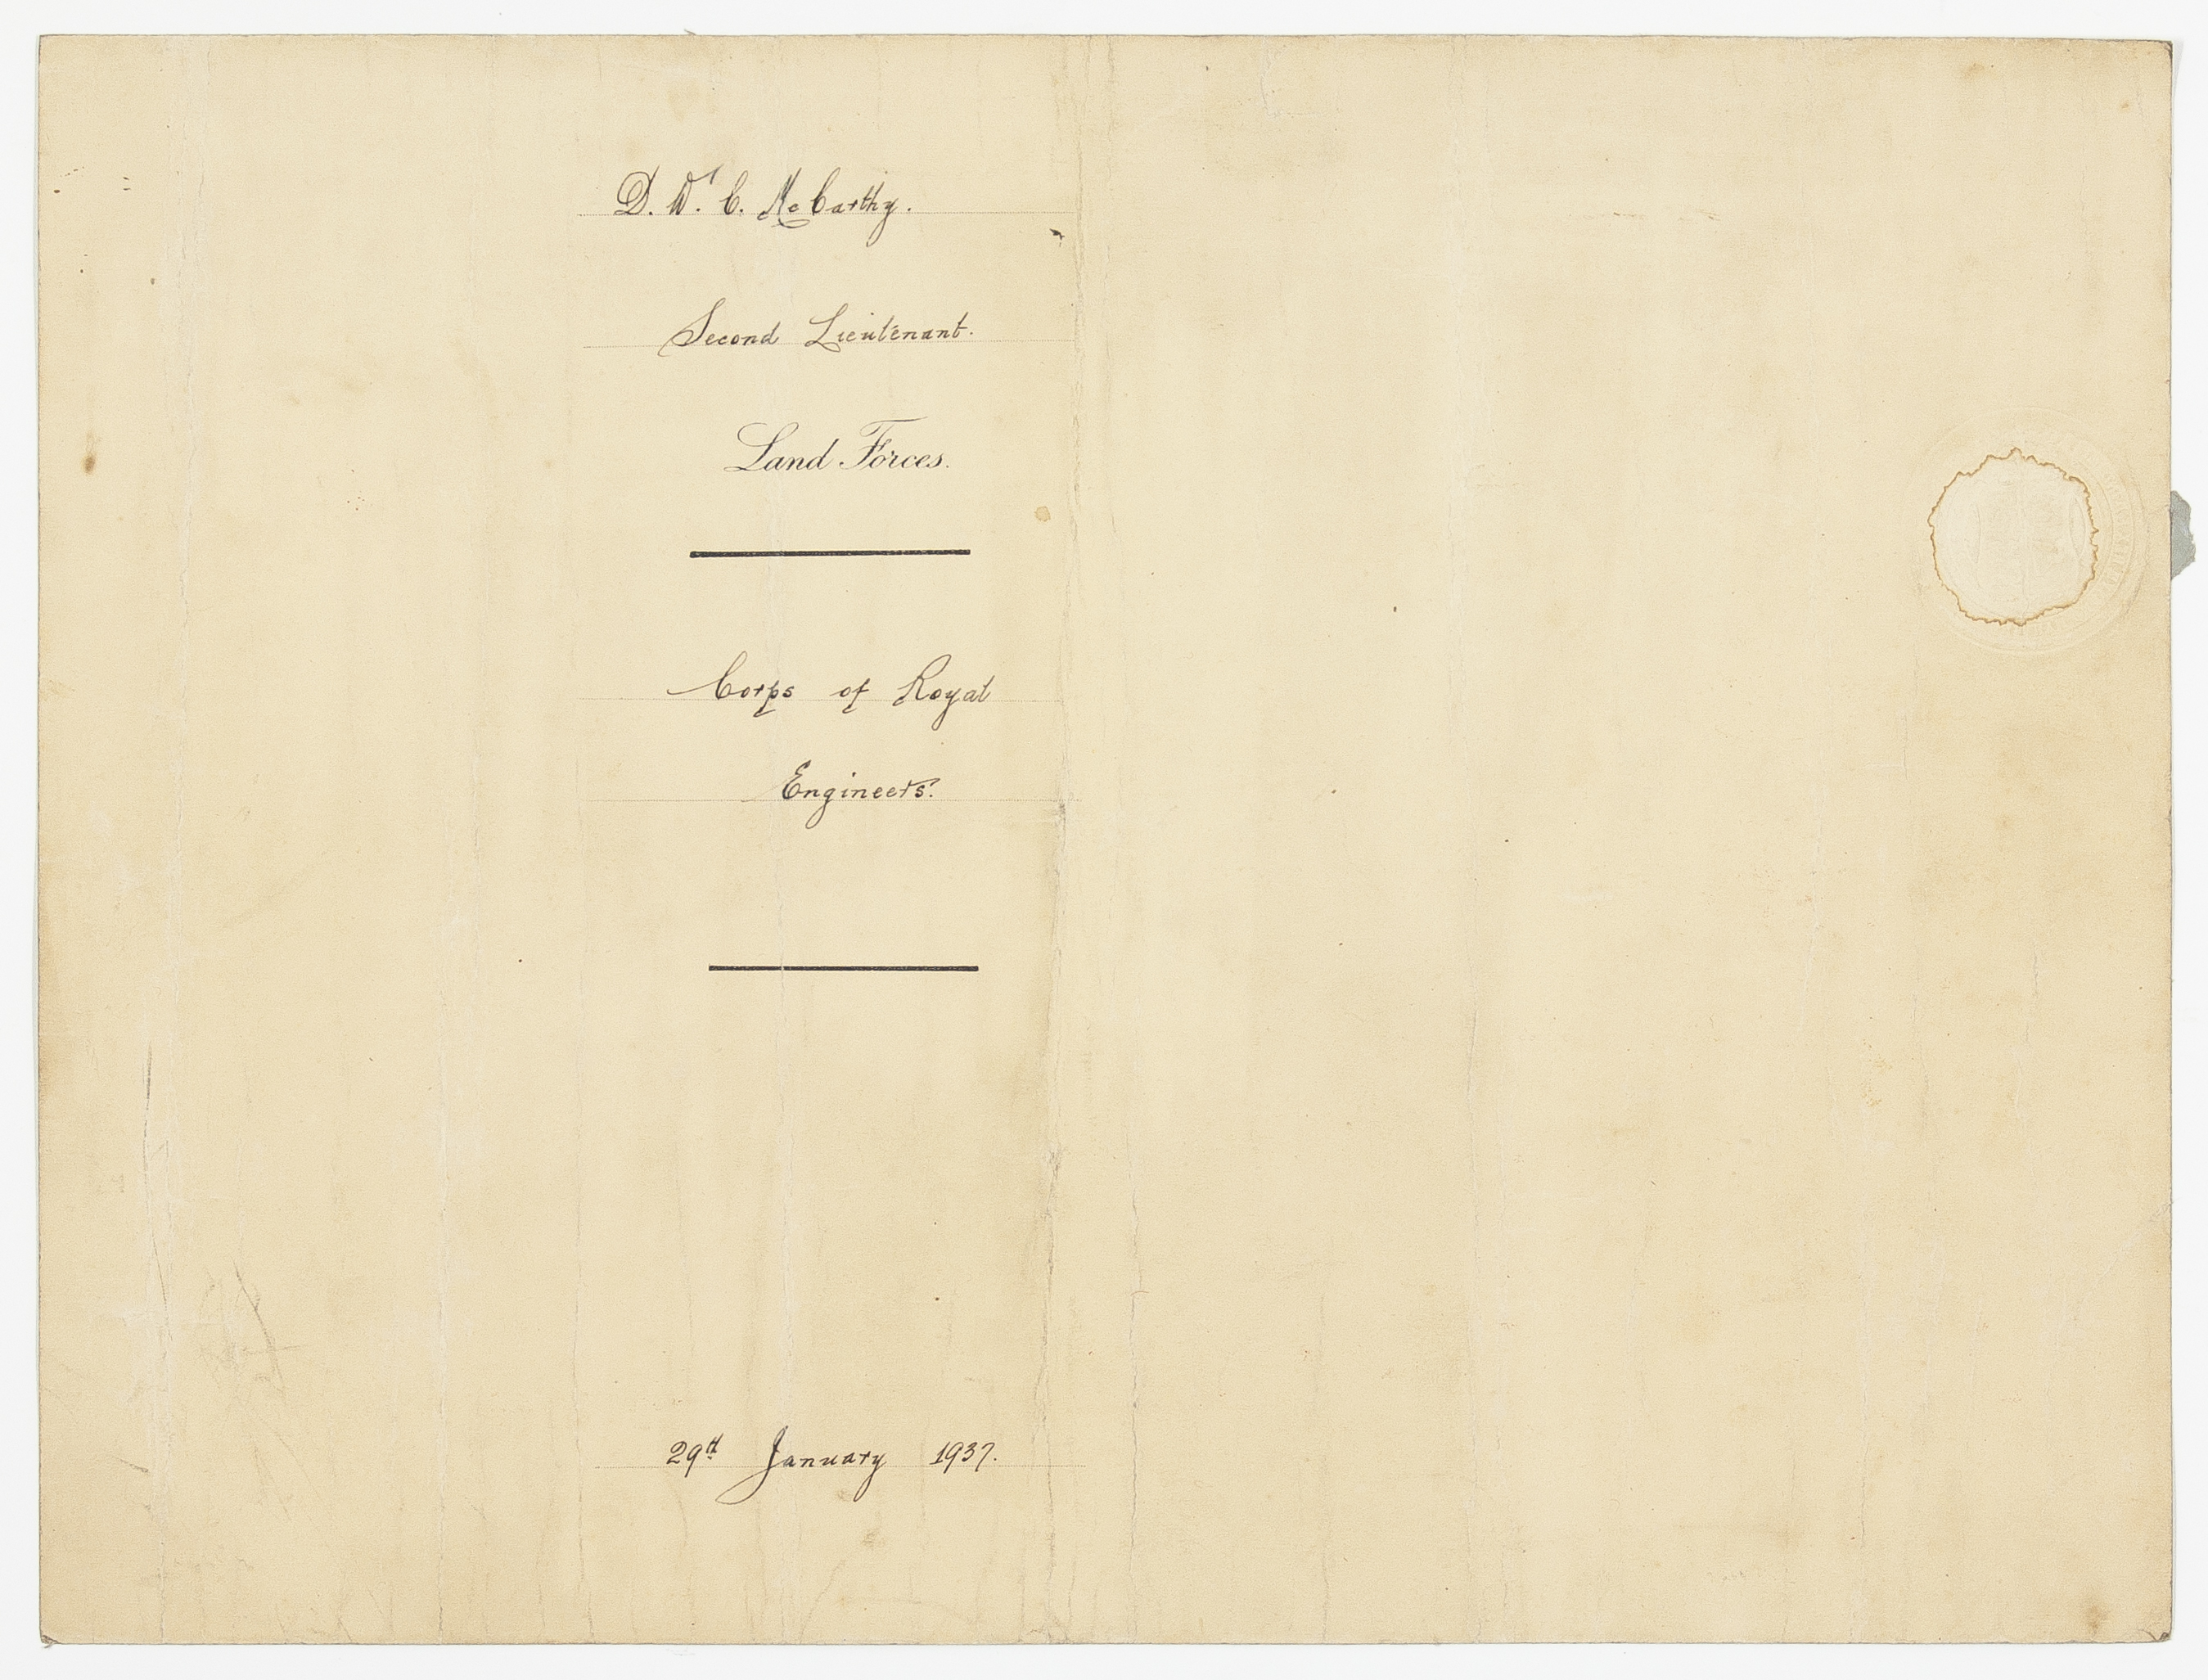 D. W. C. McCarthy.
Second Lieutenant.
Land Forces.
Corps of Royal
Engineers.
29th January 1937.